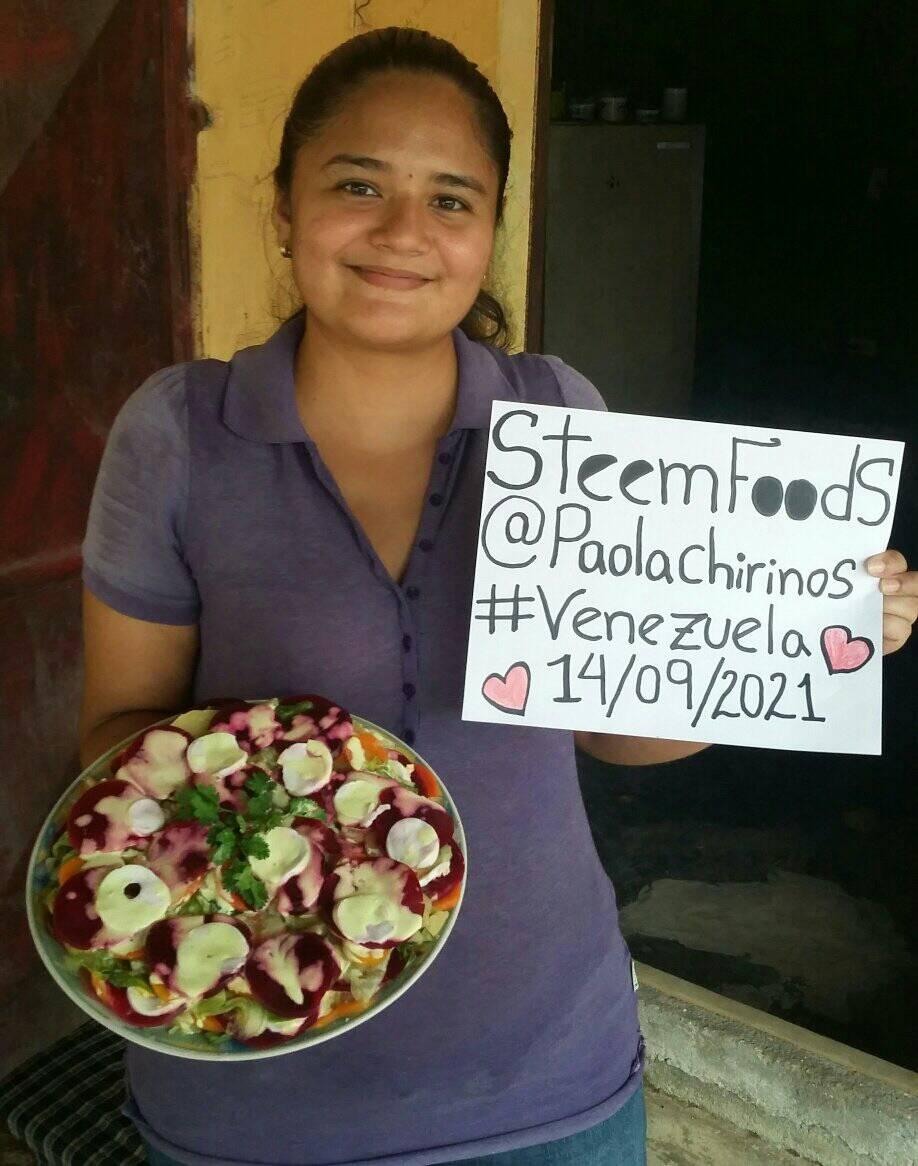 SteemFoodS
@Paolachirinos
#Venezuela
14/09/2021